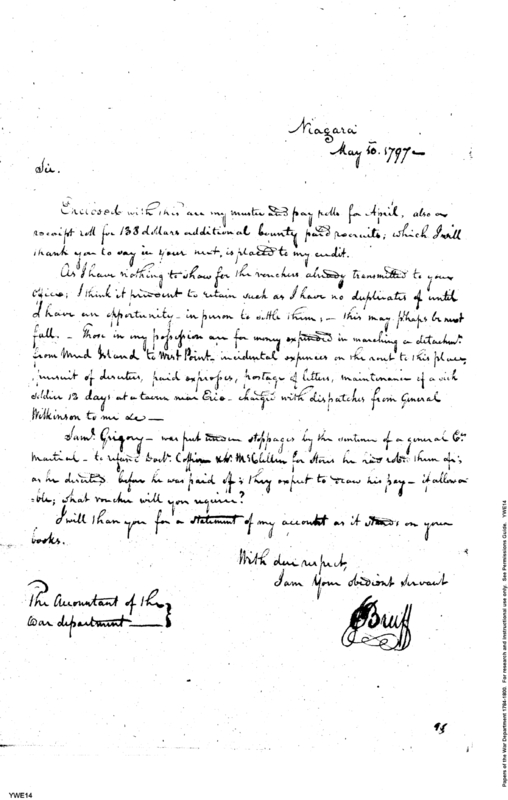 Niagara
May 30. 1797
Sir.
Enclosed with this are my muster and pay rolls for April, also a
receipt roll for 138 dollars additional bounty paid recruits; which I will
thank you to say in your next, is placed to my credit.
As I have nothing to show for the vouchers already transmitted to your
office; I think it prudent to retain such as I have no duplicates of until
I have an opportunity - in person to settle them; - this may perhaps be next
fall. - Those in my possession are for money expended in marching a detachmt
from Mud Island to West Point, incidental expences on the rout to this place,
pursuit of deserters, paid expresses, postage of letters, maintenance of a sick
soldier 13 days at a tavern near Erie - charged with dispatches from General
Wilkinson to me &c -
Saml. Grigory - was put under stoppages by the sentence of a general Ct.
Martial - to refund Doct. Coffin & Mr. McClellen for stores he had them of;
as he deserted before he was paid of; they expect to draw his pay - if allowa
ble; what voucher will you require?
I will than you for a statement of my account as it stands on your
books.
With due respect,
I am your obedient servant
The Accountant of the
War department
Bruff
95
YWE14
Papers of the War Department 1784-1800. For research and instructional use only. See Permissions Guide. YWE14